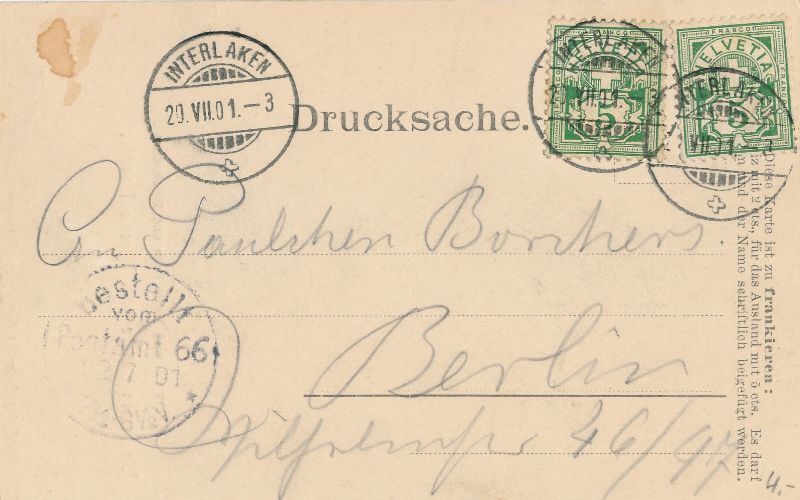 INTERLAKEN
20.VII.01.-3
Drucksache.
FRANCO
HELVETIA
5
INTERLAKEN
20.VII.01.-3
FRANCO
HELVETIA
5
INTERLAKEN
VII.01.-3
Diese Karte ist zu frankieren:
iz mit 2 cts., für das Ausland mit 5 cts. Es darf
und der Name schriftlich beigefügt werden.
An Paulchen Borchers.
Berlin
Wilhelmstr 46/47
Bestellt
vom
Postamt 66
22 7 01
4.-